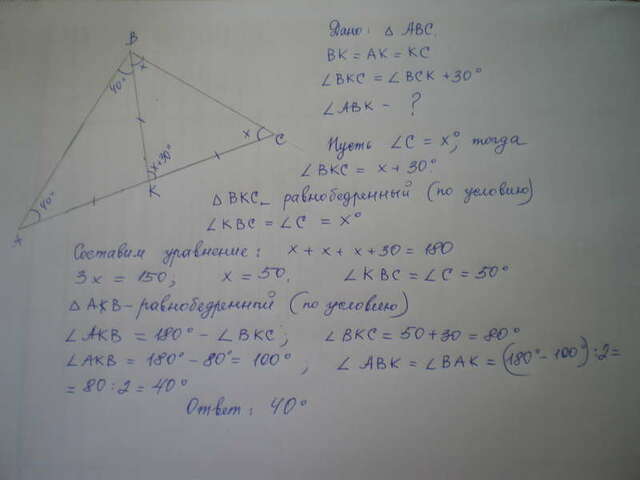 B
40°
x
Дано: △ ABC.
BK = AK = KC
∠BKC = ∠BCK + 30°
∠ABK - ?
x
C
x+30°
K
40°
A
Пусть ∠C = x°, тогда
∠BKC = x + 30°
△ BKC - равнобедренный (по условию)
∠KBC = ∠C = x°
Составим уравнение: x + x + x + 30 = 180
3x = 150; x = 50. ∠KBC = ∠C = 50°
△ AKB - равнобедренный (по условию)
∠AKB = 180° - ∠BKC; ∠BKC = 50 + 30 = 80°
∠AKB = 180° - 80° = 100°; ∠ABK = ∠BAK = (180° - 100°) : 2 =
= 80 : 2 = 40°
Ответ: 40°